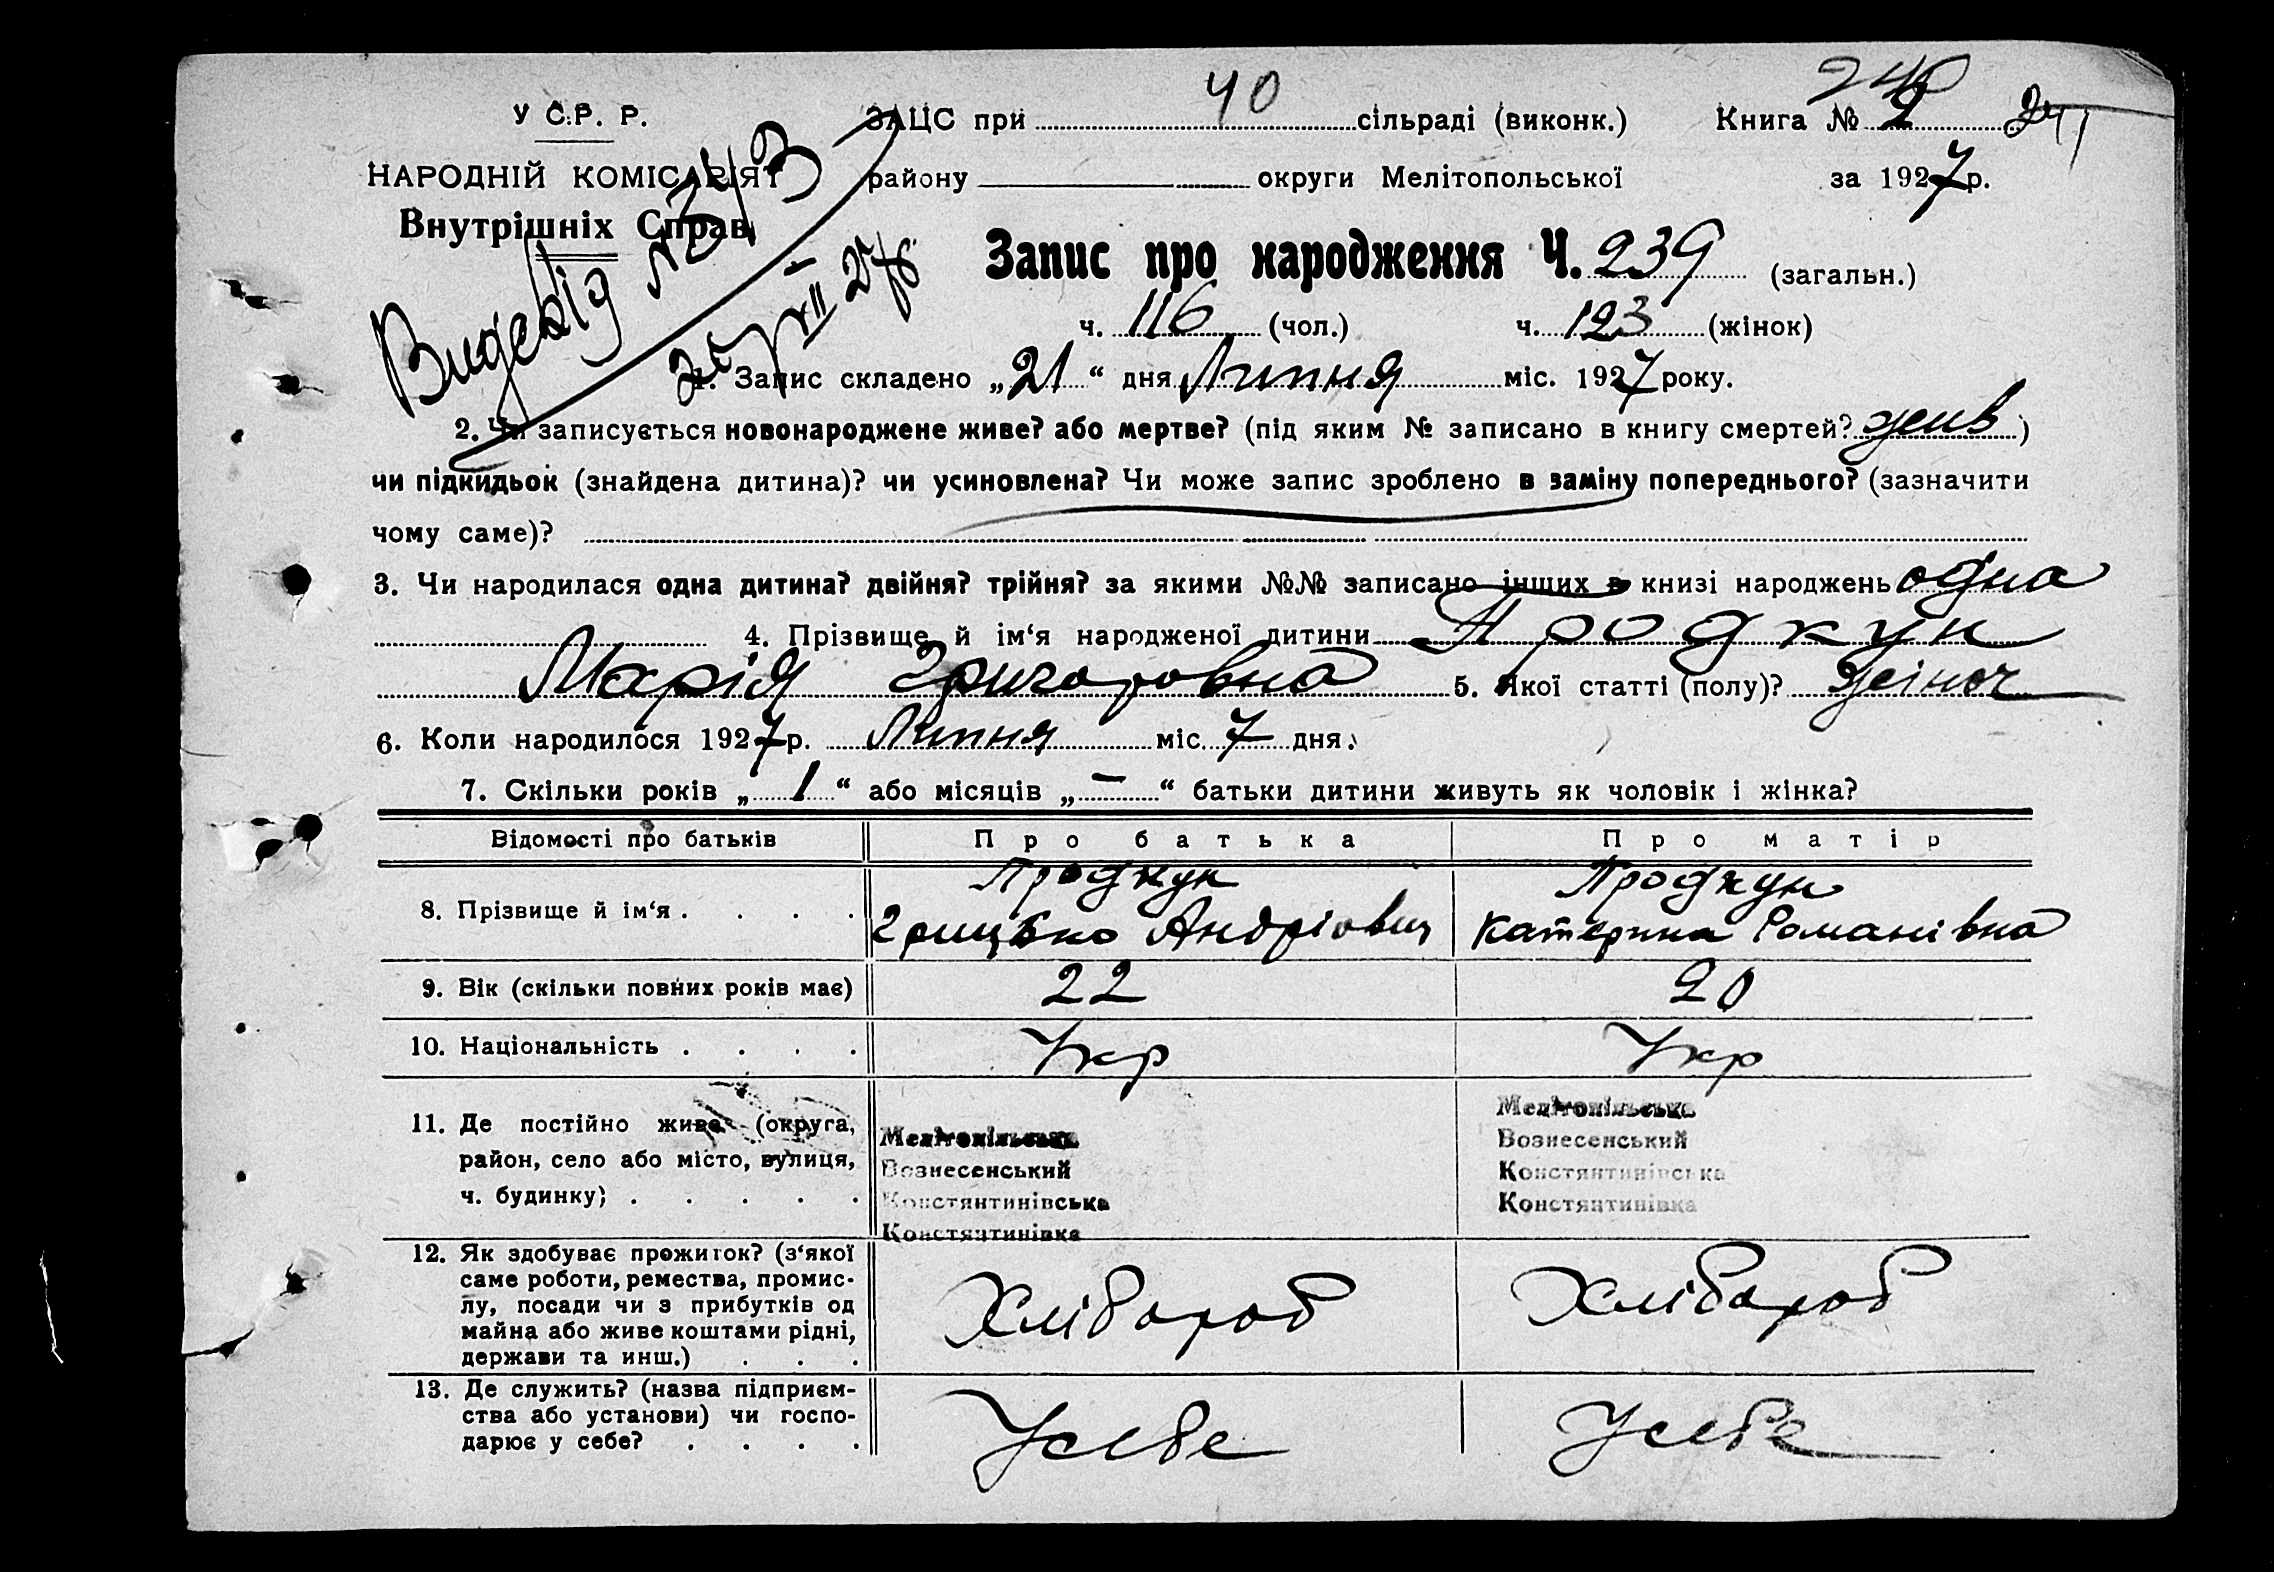 240
У С.Р. Р.
ЗАЦС при 40 сільраді (виконк.) Книга № 2 241
НАРОДНІЙ КОМІСАРІЯТ
району округи Мелітопольської за 1927 р.
Внутрішніх Справ
Запис про народження Ч. 239 (загальн.)
ч. 116 (чол.) ч. 123 (жінок)
1. Запис складено „21“ дня Липня міс. 1927 року.
2. Чи записується новонароджене живе? або мертве? (під яким № записано в книгу смертей? жив)
чи підкидьок (знайдена дитина)? чи усиновлена? Чи може запис зроблено в заміну попереднього? (зазначити
чому саме)?
3. Чи народилася одна дитина? двійня? трійня? за якими №№ записано інших в книзі народжень одна
4. Прізвище й ім‘я народженої дитини Продкун
Марія Григоровна 5. Якої статті (полу)? жіноч
6. Коли народилося 1927 р. Липня міс. 7 дня.
7. Скільки років „1“ або місяців „—“ батьки дитини живуть як чоловік і жінка?
Відомості про батьків Про батька Про матір
Продкун Продкун
8. Прізвище й ім‘я . . . . Грицько Андріович Катерина Романівна
9. Вік (скільки повних років має) 22 20
10. Національність . . . . Укр Укр
11. Де постійно живе (округа,
район, село або місто, вулиця,
ч. будинку) . . . . .
Мелітопільська
Вознесенський
Констянтинівська
Констянтинівка
Мелітопільська
Вознесенський
Констянтинівська
Констянтинівка
12. Як здобуває прожиток? (з‘якої
саме роботи, ремества, промис-
лу, посади чи з прибутків од
майна або живе коштами рідні,
держави та инш.) . . .
Хлібороб Хлібороб
13. Де служить? (назва підприєм-
ства або установи) чи госпо-
дарює у себе? . . . .
У себе У себе